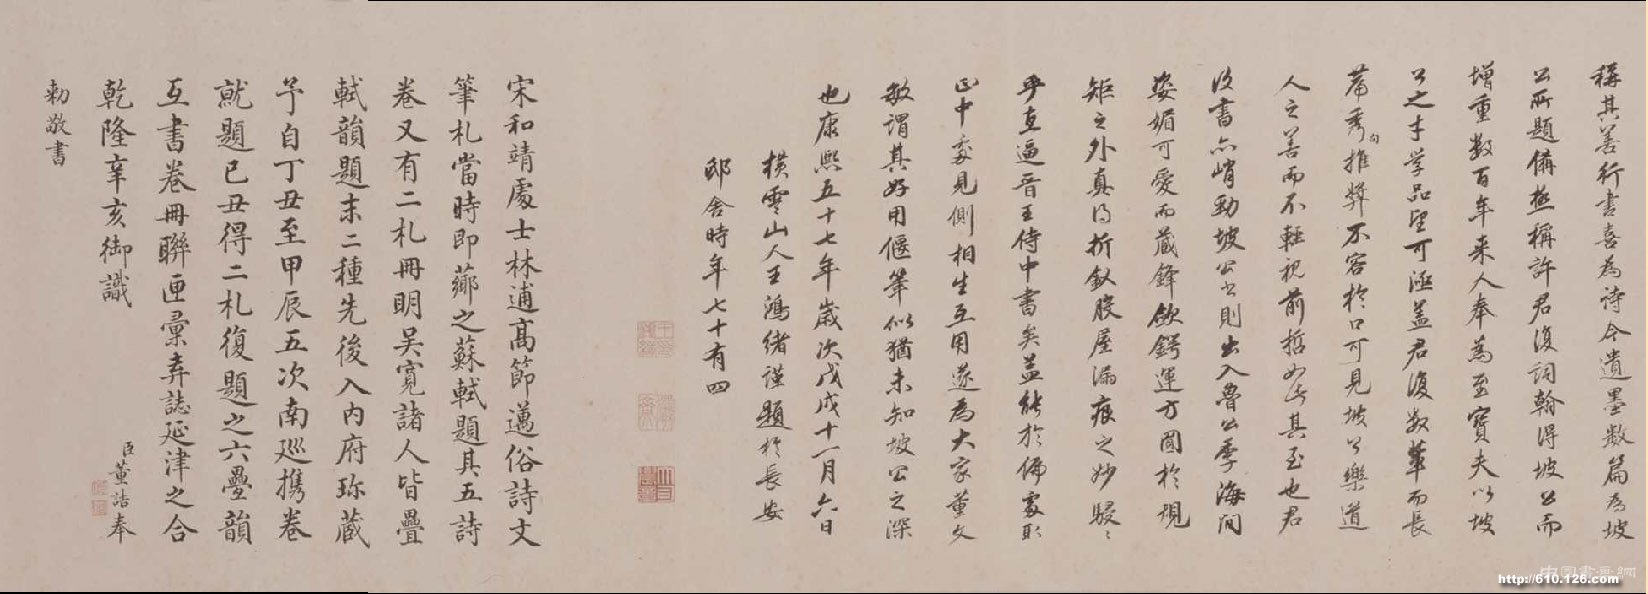 稱其善行書喜為詩今遺墨數篇為坡
公所題備極稱許君復詞翰得坡公而
增重數百年來人奉為至寶夫以坡
公之才學品望可涵蓋君復數輩而長
篇秀句推獎不容於口可見坡公樂道
人之善而不輕視前哲如此其至也君
復書亦峭勁坡公書則出入魯公季海間
姿媚可愛而藏鋒斂鍔運方圓於規
矩之外真得折釵股屋漏痕之妙駸駸
乎直逼晉王侍中書矣蓋能於偏處取
正中處見側相生互用遂為大家董文
敏謂其好用偃筆似猶未知坡公之深
也康熙五十七年歲次戊戌十一月六日
橫雲山人王鴻緒謹題於長安
邸舍時年七十有四
宋和靖處士林逋高節邁俗詩文
筆札當時即薌之蘇軾題其五詩
卷又有二札冊明吳寬諸人皆疊
軾韻題末二種先後入內府珎藏
予自丁丑至甲辰五次南巡攜卷
就題已丑得二札復題之六疊韻
互書卷冊聯匣彙弆誌延津之合
乾隆辛亥御識
臣董誥奉
勅敬書
中国书画网
http://610.126.com/